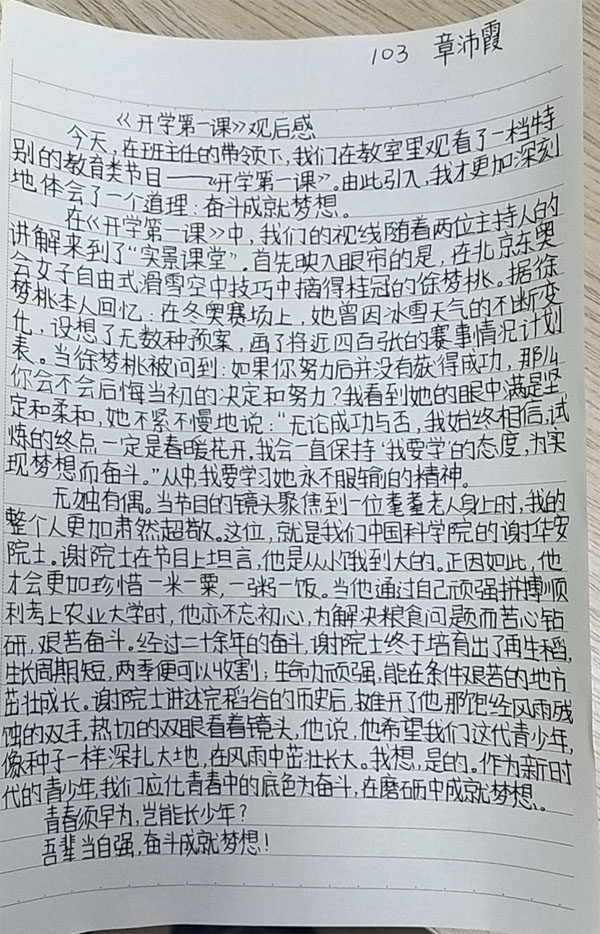 103 章沛霞
《开学第一课》观后感
今天,在班主任的带领下,我们在教室里观看了一档特
别的教育类节目——《开学第一课》。由此引入,我才更加深刻
地体会了一个道理:奋斗成就梦想。
在《开学第一课》中,我们的视线随着两位主持人的
讲解来到了“实景课堂”。首先映入眼帘的是,在北京冬奥
会女子自由式滑雪空中技巧中摘得桂冠的徐梦桃。据徐
梦桃本人回忆:在冬奥赛场上,她曾因冰雪天气的不断变
化,设想了无数种预案,画了将近四百张的赛事情况计划
表。当徐梦桃被问到:如果你努力后并没有获得成功,那么
你会不会后悔当初的决定和努力?我看到她的眼中满是坚
定和柔和,她不紧不慢地说:“无论成功与否,我始终相信,试
炼的终点一定是春暖花开。我会一直保持‘我要学’的态度,为实
现梦想而奋斗。”从中,我要学习她永不服输的精神。
无独有偶。当节目的镜头聚焦到一位耄耋老人身上时,我的
整个人更加肃然超敬。这位,就是我们中国科学院的谢华安
院士。谢院士在节目上坦言,他是从小饿到大的。正因如此,他
才会更加珍惜一米一粟,一粥一饭。当他通过自己顽强拼搏顺
利考上农业大学时,他亦不忘初心,为解决粮食问题而苦心钻
研,艰苦奋斗。经过二十余年的奋斗,谢院士终于培育出了再生稻,
生长周期短,两季便可以收割;生命力顽强,能在条件艰苦的地方
茁壮成长。谢院士讲述完稻谷的历史后,摊开了他那饱经风雨残
蚀的双手,热切的双眼看着镜头,他说,他希望我们这代青少年,
像种子一样深扎大地,在风雨中茁壮长大。我想,是的。作为新时
代的青少年,我们应化青春中的底色为奋斗,在磨砺中成就梦想。
青春须早为,岂能长少年?
吾辈当自强,奋斗成就梦想!